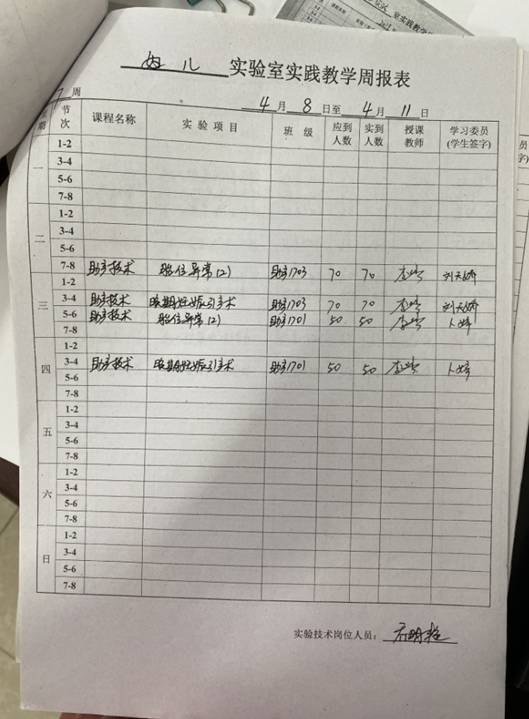 妇儿 实验室实践教学周报表
7 周 4 月 8 日至 4 月 11 日
期 节次 课程名称 实验项目 班级 应到人数 实到人数 授课教师 学习委员(学生签字)
一 1-2
3-4
5-6
7-8
二 1-2
3-4
5-6
7-8 助产技术 胎位异常(2) 助产1703 70 70
三 1-2
3-4 助产技术 晚期妊娠引产术 助产1703 70 70
5-6 助产技术 胎位异常(2) 助产1701 50 50
7-8
四 1-2
3-4 助产技术 晚期妊娠引产术 助产1701 50 50
5-6
7-8
五 1-2
3-4
5-6
7-8
六 1-2
3-4
5-6
7-8
日 1-2
3-4
5-6
7-8
实验技术岗位人员：